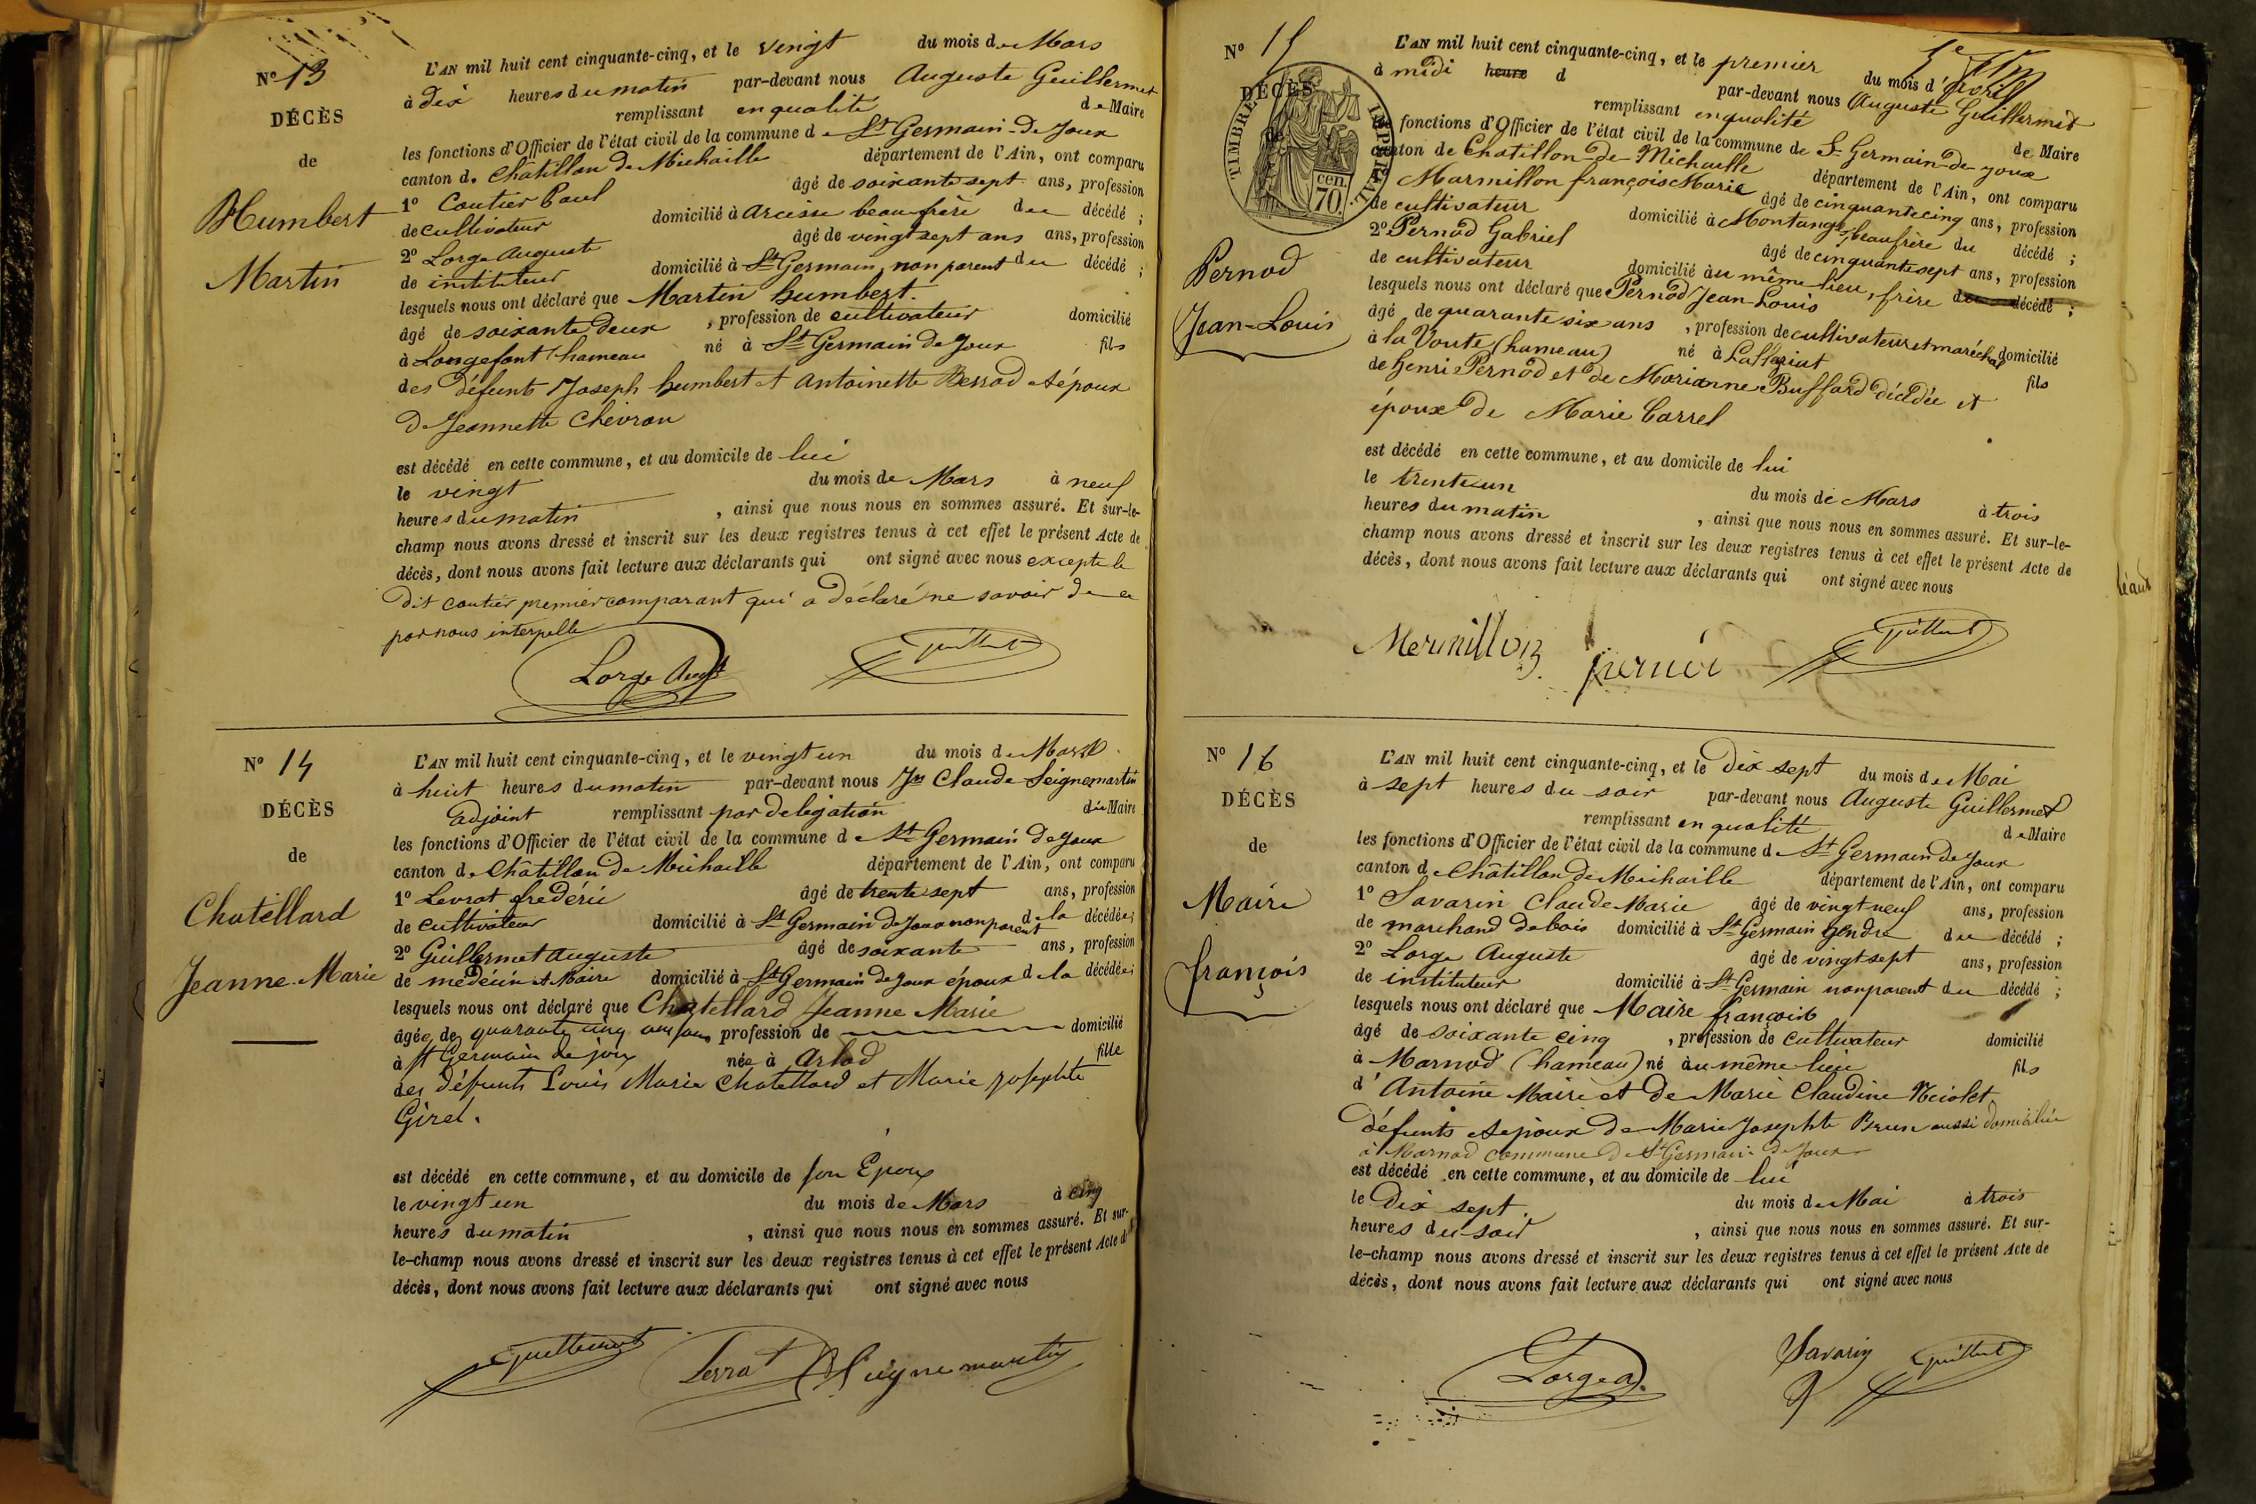 N° 13
DÉCÈS
de
Humbert
Martin
L'AN mil huit cent cinquante-cinq, et le vingt du mois de Mars
à dix heures du matin par-devant nous Auguste Guillermet
remplissant en qualité de Maire
les fonctions d'Officier de l'état civil de la commune de St Germain-de Joux
canton de Chatillon de Michaille département de l'Ain, ont comparu
1° Coutier Paul âgé de soixante sept ans, profession
de cultivateur domicilié à arcisse beaufrère du décédé ;
2° Lorge Auguste âgé de vingt sept ans ans, profession
de instituteur domicilié à St Germain, non parent du décédé ;
lesquels nous ont déclaré que Martin humbert.
âgé de soixante deux , profession de cultivateur domicilié
à Longefont (hameau né à St Germain de Joux fils
des défunts Joseph humbert et Antoinette Berrod et époux
de Jeannette Chevron
est décédé en cette commune, et au domicile de lui
le vingt du mois de Mars à neuf
heures du matin , ainsi que nous nous en sommes assuré. Et sur-le-
champ nous avons dressé et inscrit sur les deux registres tenus à cet effet le présent Acte de
décès, dont nous avons fait lecture aux déclarants qui ont signé avec nous excepté le
dit Coutier premier comparant qui a déclaré ne savoir de ce
par nous interpellé
Lorge Augte Guillermet
N° 14
DÉCÈS
de
Chatellard
Jeanne-Marie
L'AN mil huit cent cinquante-cinq, et le vingt un du mois de Mars
à huit heures du matin par-devant nous Jn Claude Seignemartin
adjoint remplissant par delegation du Maire
les fonctions d'Officier de l'état civil de la commune de St Germain de Joux
canton de Châtillon de Michaille département de l'Ain, ont comparu
1° Levrat fredéric âgé de trente sept ans, profession
de cultivateur domicilié à St Germain de Joux non parent de la décédée ;
2° Guillermet Auguste âgé de soixante ans, profession
de médecin et Maire domicilié à St Germain de Joux époux de la décédée ;
lesquels nous ont déclaré que Chatellard Jeanne Marie
âgée de quarante cinq ans profession de domicilié
à St Germain de joux née à arlod fille
des défunts Louis Marie Chatellard et Marie josephte
Girel.
est décédé en cette commune, et au domicile de son Epoux
le vingt un du mois de Mars à cinq
heures du matin , ainsi que nous nous en sommes assuré. Et sur-
le-champ nous avons dressé et inscrit sur les deux registres tenus à cet effet le présent Acte de
décès, dont nous avons fait lecture aux déclarants qui ont signé avec nous
Guillermet Levrat Seignemartin
N° 15
DÉCÈS
de
TIMBRE IMPERIAL
70 cen.
Pernod
Jean-Louis
L'AN mil huit cent cinquante-cinq, et le premier du mois d'avril
à midi heure d par-devant nous Auguste Guillermet
remplissant en qualité de Maire
les fonctions d'Officier de l'état civil de la commune de St Germain-de-joux
canton de Chatillon-de-Michaille département de l'Ain, ont comparu
Marmillon françois Marie âgé de cinquante cinq ans, profession
de cultivateur domicilié à Montange, beaufrère du décédé ;
2° Pernod Gabriel âgé de cinquante sept ans, profession
de cultivateur domicilié au même lieu, frère du décédé ;
lesquels nous ont déclaré que Pernod Jean Louis
âgé de quarante six ans , profession de cultivateur et maréchal domicilié
à la Voute (hameau) né à Lalleyriat fils
de henri Pernod et de Marianne Buffard décédée et
époux de Marie Carrel
est décédé en cette commune, et au domicile de lui
le trente un du mois de Mars à trois
heures du matin , ainsi que nous nous en sommes assuré. Et sur-le-
champ nous avons dressé et inscrit sur les deux registres tenus à cet effet le présent Acte de
décès, dont nous avons fait lecture aux déclarants qui ont signé avec nous
Mermillon Guillermet
N° 16
DÉCÈS
de
Maire
françois
L'AN mil huit cent cinquante-cinq, et le Dix sept du mois de Mai
à sept heures du soir par-devant nous Auguste Guillermet
remplissant en qualité de Maire
les fonctions d'Officier de l'état civil de la commune de St Germain de Joux
canton de Châtillon de Michaille département de l'Ain, ont comparu
1° Savarin Claude Marie âgé de vingt neuf ans, profession
de marchand de bois domicilié à St Germain gendre du décédé ;
2° Lorge Auguste âgé de vingt sept ans, profession
de instituteur domicilié à St Germain non parent du décédé ;
lesquels nous ont déclaré que Maire françois
âgé de soixante cinq , profession de cultivateur domicilié
à Marnod (hameau) né au même lieu fils
d'Antoine Maire et de Marie Claudine Niolet
défunts et époux de Marie Josephte Brun aussi domiciliée
à Marnod commune de St Germain de Joux
est décédé en cette commune, et au domicile de lui
le Dix sept du mois de Mai à trois
heures du soir , ainsi que nous nous en sommes assuré. Et sur-
le-champ nous avons dressé et inscrit sur les deux registres tenus à cet effet le présent Acte de
décès, dont nous avons fait lecture aux déclarants qui ont signé avec nous
Lorge a. Savarin Guillermet